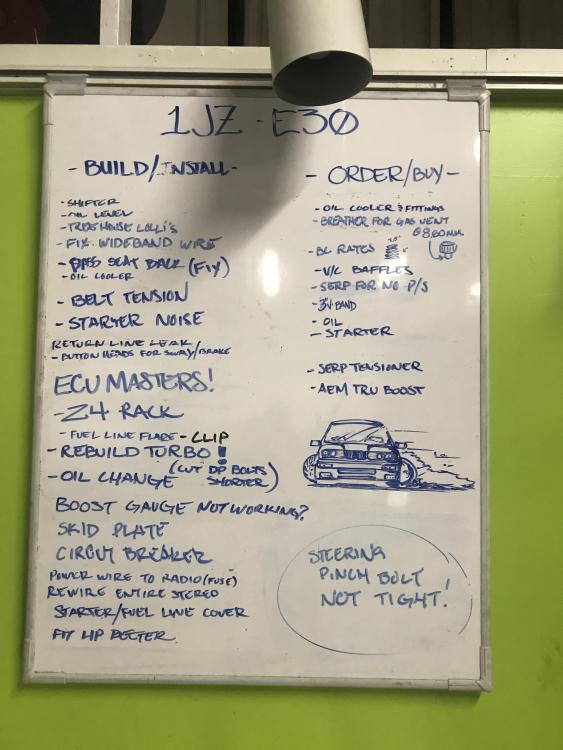 1JZ - E30
- BUILD/INSTALL -
- SHIFTER
- OIL LEVEL
- TREEHOUSE LOLLI'S
- FIX WIDEBAND WIRE
- PASS SEAT BACK (FIX)
- OIL COOLER
- BELT TENSION
- STARTER NOISE
RETURN LINE LEAK
- BUTTON HEADS FOR SWAY/BRAKE
ECU MASTERS!
- Z4 RACK
- FUEL LINE FLARE - CLIP
- REBUILD TURBO!
- OIL CHANGE (CUT DP BOLTS SHORTER)
BOOST GAUGE NOT WORKING?
SKID PLATE
CIRCUT BREAKER
POWER WIRE TO RADIO (FUSE)
REWIRE ENTIRE STEREO
STARTER/FUEL LINE COVER
FIT LIP BETTER
- ORDER/BUY -
- OIL COOLER & FITTINGS
- BREATHER FOR GAS VENT
8.60MM
- BC RATES
- V/C BAFFLES
- SERP FOR NO P/S
- 3" V-BAND
- OIL
- STARTER
- SERP TENSIONER
- AEM TRU BOOST
STEERING
PINCH BOLT
NOT TIGHT!